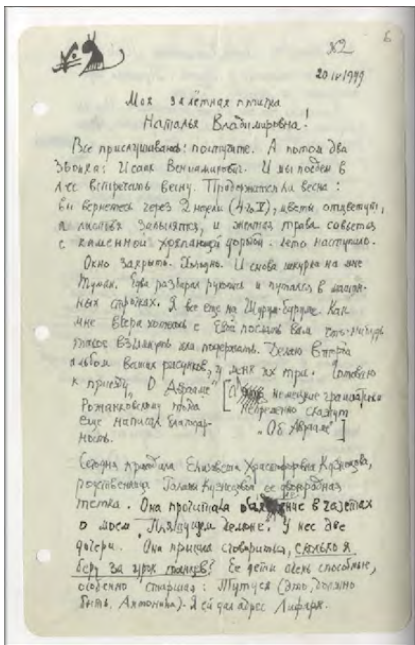 №2
6
20 IV 1949
Моя залётная птичка
Наталья Владимировна!
Все прислушиваюсь: постучите. А потом два
звонка: Исаак Вениаминович. И мы поедем в
лес встречать весну. Продолжается ли весна:
вы вернетесь через 2 недели (4-го V), цветы отцветут,
а листья запылятся, и желтая трава сов
с каменной дорогой. Лето наступило.
Окно закрыто. Холодно. И снова на мне
Туман. Едва разбирал рукопись и путался в
ных строчках. Я все еще на Шурум-буруме. Как
мне вчера хотелось с Евой послать вам что-нибудь
такое взглянуть или подержать. Делаю второй
альбом ваших рисунков, у меня их три. Готовлю
к приезду „О Авраме"
Рожанковскому тогда
еще написал благодар-
ность.
[ немецкие грамотники
непременно скажут
„Об Авраме" ]
Сегодня приходила Елизавета Христофоровна Кузнецова,
родственница Галины Кузнецовой ее двоюродная
тетка. Она прочитала в газетах
о моем „Пляшущем демоне". У нее две
дочери. Она пришла сговориться, сколько я
беру за урок танцев? Ее дети очень способные,
особенно старшая: Тутуся (это, должно
быть, Антонина). Я ей дал адрес Лифаря.